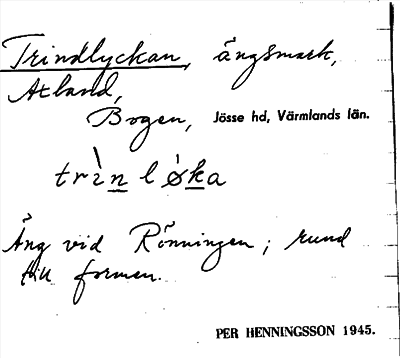 Trindlyckan, ängsmark,
Åtland,
Bogen, Jösse hd, Värmlands län.
trìnlǿka
Äng vid Rönningen; rund
till formen.
PER HENNINGSSON 1945.